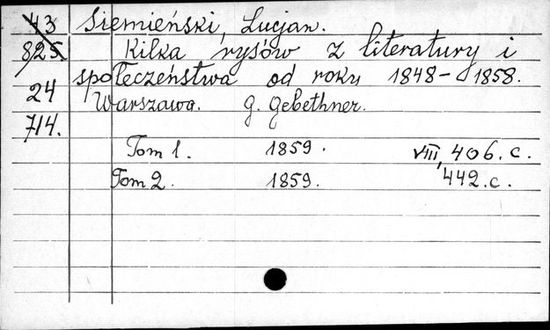 43 Siemieński, Lucjan.
825 Kilka rysów z literatury i
społeczeństwa od roku 1848-1858.
24 Warszawa. G. Gebethner.
714.
Tom 1. 1859. VIII, 406.c.
Tom 2. 1859. 442.c.